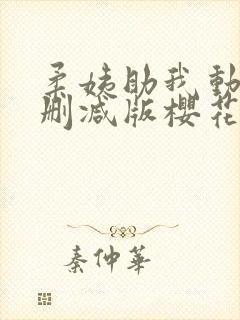 柔姨助我動
刪減版櫻花
秦仲華